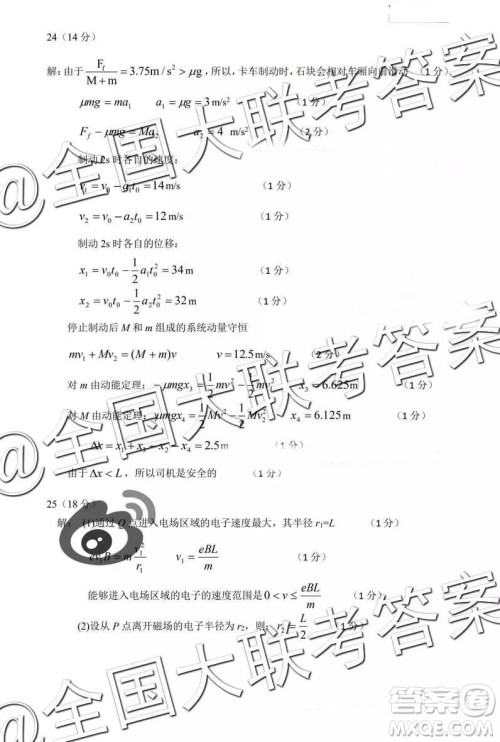 24（14 分）
解：由于 F_f/(M+m) = 3.75m/s² > μg ,所以，卡车制动时，石块会相对车厢向前滑动 （1 分）
μmg = ma₁  a₁ = μg = 3 m/s²  （1 分）
F_f − μmg = Ma₂  a₂ = 4 m/s²  （2 分）
制动 2s 时各自的速度：
v₁ = v₀ − a₁t₀ = 14 m/s  （1 分）
v₂ = v₀ − a₂t₀ = 12 m/s  （1 分）
制动 2s 时各自的位移：
x₁ = v₀t₀ − 1/2 a₁t₀² = 34 m  （1 分）
x₂ = v₀t₀ − 1/2 a₂t₀² = 32 m  （1 分）
停止制动后 M 和 m 组成的系统动量守恒
mv₁ + Mv₂ = (M + m)v  v = 12.5 m/s  （2 分）
对 m 由动能定理：−μmgx₃ = 1/2 mv² − 1/2 mv₁²  x₃ = 6.625 m （1 分）
对 M 由动能定理：μmgx₄ = 1/2 Mv² − 1/2 Mv₂²  x₄ = 6.125 m （1 分）
Δx = x₁ + x₃ − x₂ − x₄ = 2.5 m  （1 分）
由于 Δx < L，所以司机是安全的  （1 分）
25（18 分）
解：(1)通过 Q 点进入电场区域的电子速度最大，其半径 r₁=L  （1 分）
ev₁B = m v₁²/r₁  v₁ = eBL/m  （1 分）
能够进入电场区域的电子的速度范围是 0 < v ≤ eBL/m  （1 分）
(2)设从 P 点离开磁场的电子半径为 r₂，则：r₂ = L/2  （1 分）
@全国大联考答案
@全国大联考答案
@全国大联考答案
答案圈
MXQE.COM